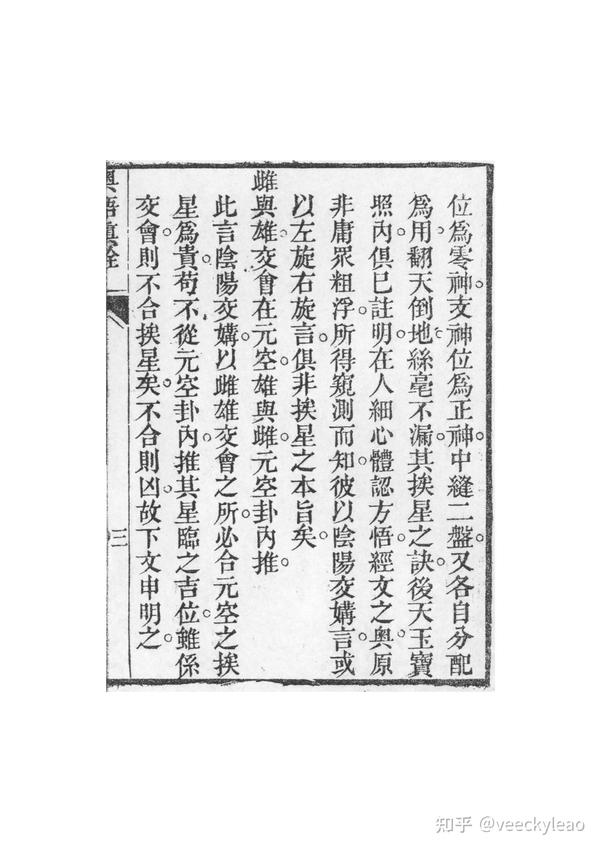 位為零神。支神位為正神。中縫二盤。又各自分配
為用。翻天倒地。絲毫不漏。其挨星之訣。後天玉寶
照內俱已註明。在人細心體認。方悟經文之奧。原
非庸眾粗浮。所得窺測而知。彼以陰陽交媾言。或
以左旋右旋言。俱非挨星之本旨矣。
雌與雄。交會在元空。雄與雌。元空卦內推。
此言陰陽交媾。以雌雄交會之所。必合元空之挨
星為貴。苟不從元空卦內。推其星臨之吉位。雖係
交會。則不合挨星矣。不合則凶。故下文申明之。
奧語真詮
三
知乎 @veeckyleao